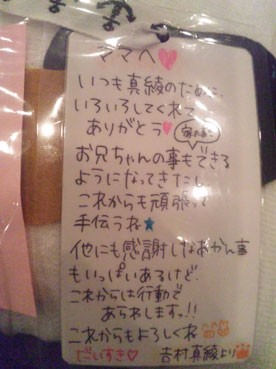 ママへ♥
いつも真綾のために、
いろいろしてくれて
ありがとう♥
お兄ちゃんの事もできる
ようになってきたし
これからも頑張って
手伝うね★
他にも感謝しなあかん事
もいっぱいあるけど
これからは行動で
あらわしますっ!!
これからもよろしくね
だいすき♡ 吉村真綾より